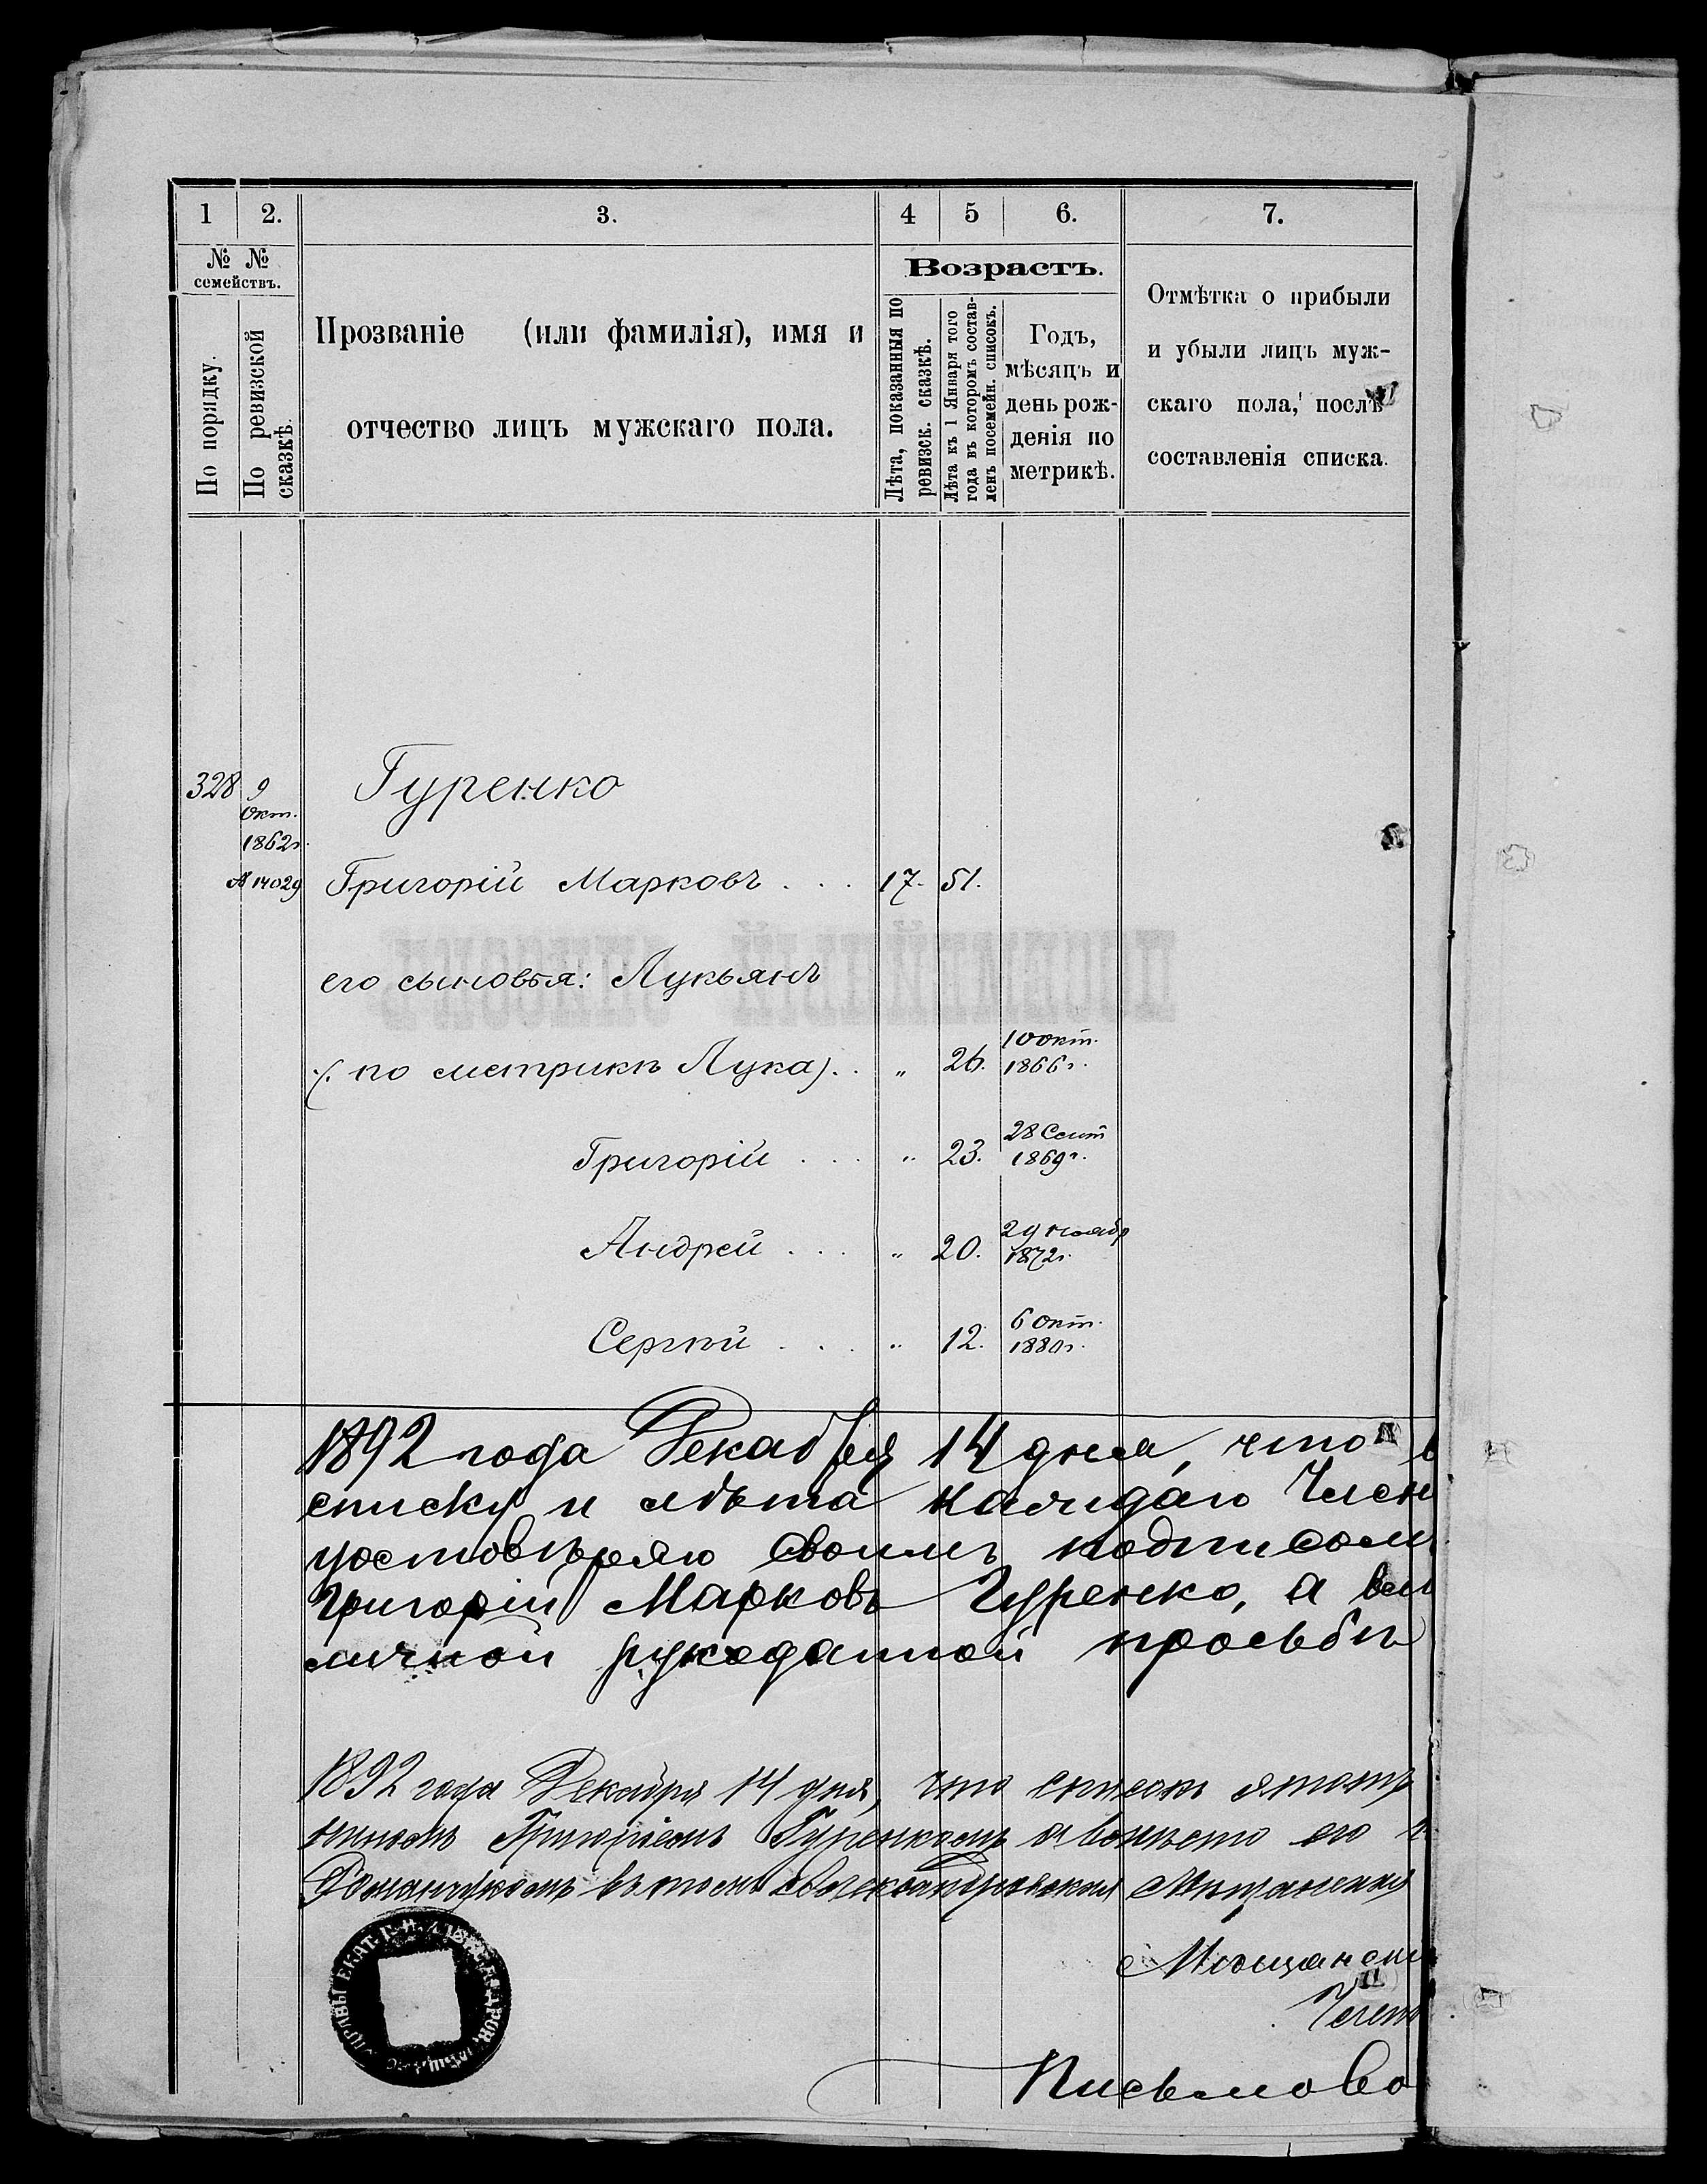 1 2. 3. 4 5 6. 7.
№ №
семействъ.
По порядку.
По ревизской
сказкѣ.
Прозваніе (или фамилія), имя и
отчество лицъ мужскаго пола.
Возрастъ.
Лѣта, показанныя по
ревизск. сказкѣ.
Лѣта къ 1 Января того
года въ которомъ состав-
ленъ посемейн. списокъ.
Годъ,
мѣсяцъ и
день рож-
денія по
метрикѣ.
Отмѣтка о прибыли
и убыли лицъ муж-
скаго пола, послѣ
составленія списка.
328 9 Гуренко
Окт.
1862г.
№ 14029 Григорій Марковъ . . . 17. 51.
его сыновья: Лукьянъ
(по метрикѣ Лука) . . " 26. 10 окт.
1866г.
Григорій . . . " 23. 28 Сент
1869г.
Андрей . . . " 20. 29 ноябр
1872г.
Сергѣй . . . " 12. 6 Окт.
1880г.
1892 года Декабря 14 дня, что в
списку и лѣта каждаго Член
удостовѣряю своимъ подписом
Григорій Марковъ Гуренко, а вм
личной рукоданной просьбѣ
1892 года Декабря 14 дня, что списокъ этотъ
Григоріемъ Гуренкомъ а вмѣсто его
въ томъ Александровская Мѣщанская
Мѣщански
Письмово